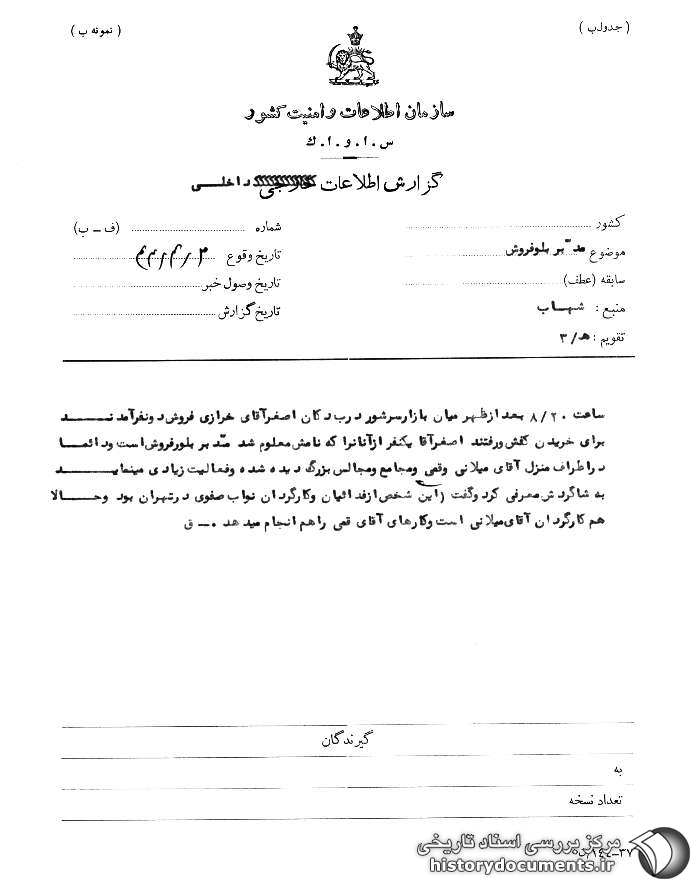 ( جدول ب )
( نمونه ب )
سازمان اطلاعات و امنیت کشور
س . ا . و . ا . ك
گزارش اطلاعات خارجی داخلــی
کشور
شماره (ف ــ ب)
موضوع مدّبر بلوفروش
تاریخ وقوع
سابقه (عطف)
تاریخ وصول خبر
منبع : شهـاب
تاریخ گزارش
تقویم : هـ/۳
ساعت ۸/۲۰ بعد از ظهر میان بازار سرشور درب دکان اصغرآقای خرازی فروش دونفرآمدنــد
برای خریدن کفش ورفتند اصغرآقا یکنفر ازآنانرا که نامش معلوم شد مدّبر بلورفروش است ودائمــا
دراطراف منزل آقای میلانی وقمی ومجامع ومجالس بزرگ دیده شده وفعالیت زیادی مینمایــد
به شاگردش معرفی کردوگفت (این شخص ازفدائیان وکارگردان نواب صفوی درتهران بود وحــالا
هم کارگردان آقای میلانی است وکارهای آقای قمی راهم انجام میدهد ۰ــ ق
گیرندگان
به
تعداد نسخه
مرکز بررسی اسناد تاریخی
historydocuments.ir